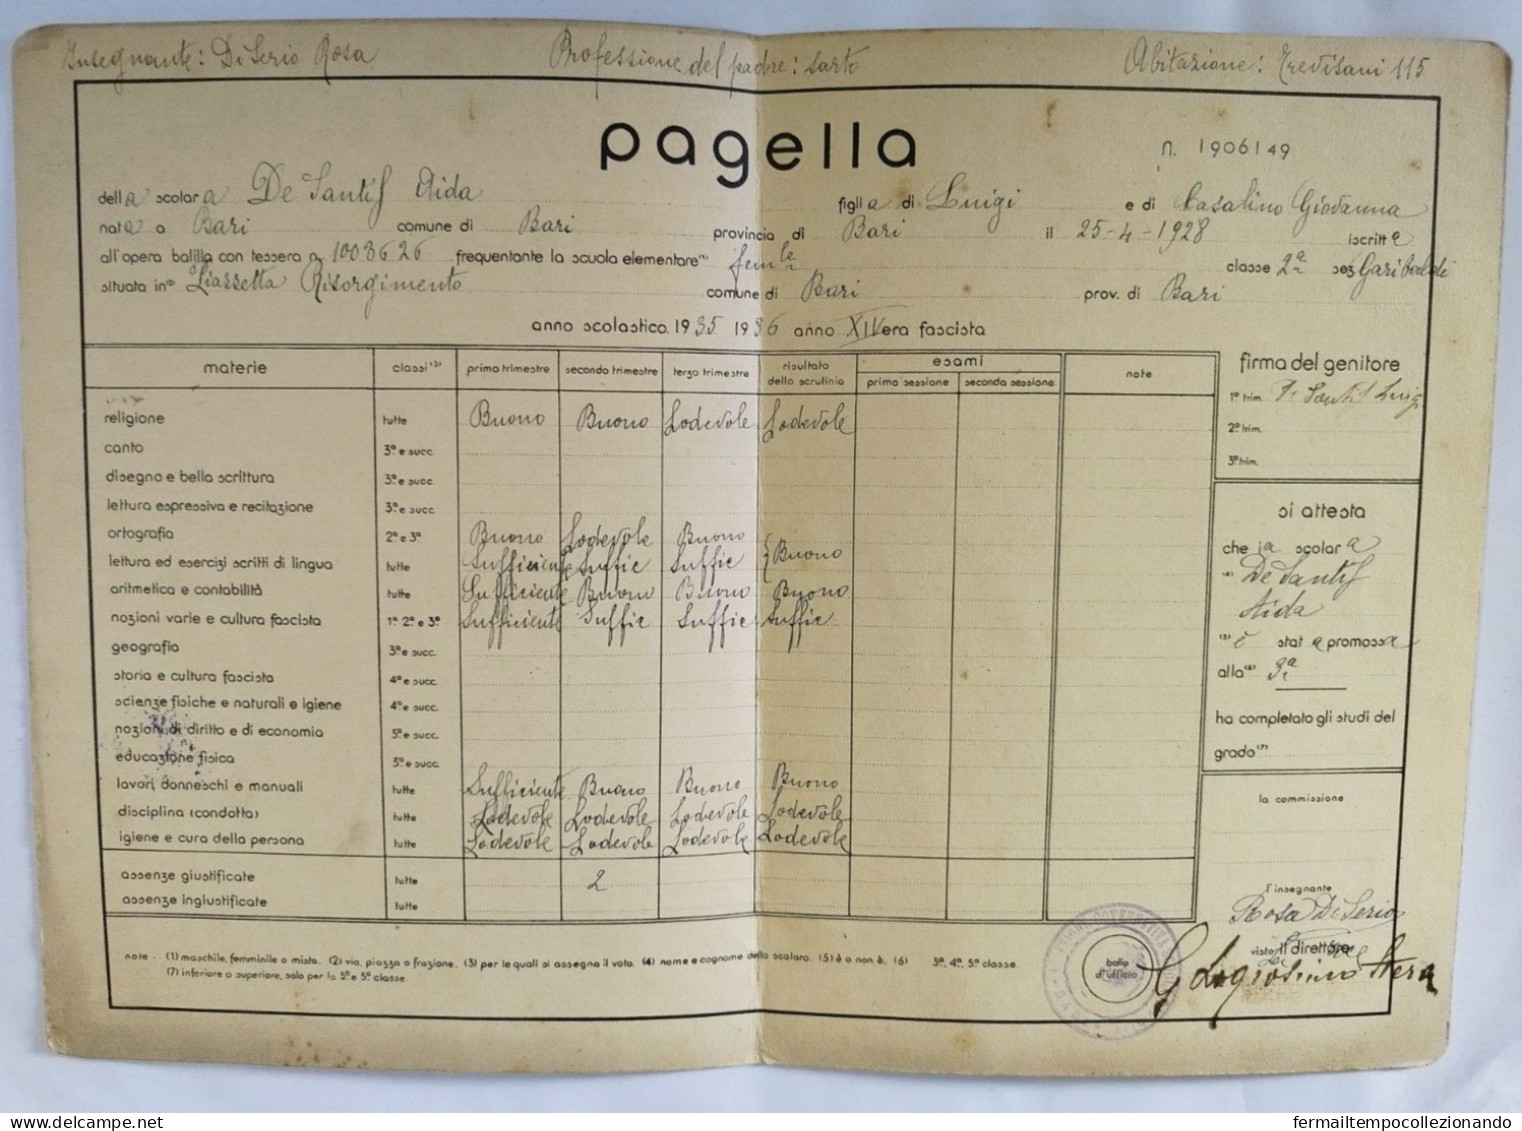 Insegnante: Di Serio Rosa Professione del padre: sarto Abitazione: Trevisani 115
pagella
n. 1906149
della scolara De Santis Aida figlia di Luigi e di Casalino Giovanna
nata a Bari comune di Bari provincia di Bari il 25-4-1928 iscritta
all'opera balilla con tessera n. 1003626 frequentante la scuola elementare (1) femle classe 2a sez Garibaldi
situata in (2) Piazzetta Risorgimento comune di Bari prov. di Bari
anno scolastico 1935 1936 anno XIV era fascista
materie classi (3) primo trimestre secondo trimestre terzo trimestre risultato dello scrutinio esami prima sessione seconda sessione note
religione tutte Buono Buono Lodevole Lodevole
canto 3ª e succ.
disegno e bella scrittura 3ª e succ.
lettura espressiva e recitazione 3ª e succ.
ortografia 2ª e 3ª Buono Lodevole Buono
lettura ed esercizi scritti di lingua tutte Sufficiente Suffic Suffic } Buono
aritmetica e contabilità tutte Sufficiente Buono Buono Buono
nozioni varie e cultura fascista 1ª 2ª e 3ª Sufficiente Suffic Suffic Suffic
geografia 3ª e succ.
storia e cultura fascista 4ª e succ.
scienze fisiche e naturali e igiene 4ª e succ.
nozioni di diritto e di economia 5ª e succ.
educazione fisica 3ª e succ.
lavori donneschi e manuali tutte Sufficiente Buono Buono Buono
disciplina (condotta) tutte Lodevole Lodevole Lodevole Lodevole
igiene e cura della persona tutte Lodevole Lodevole Lodevole Lodevole
assenze giustificate tutte 2
assenze ingiustificate tutte
firma del genitore
1º trim. De Santis Luigi
2º trim.
3º trim.
si attesta
che la scolara
(4) De Santis
Aida
(5) è stata promossa
alla (6) 3a
ha completato gli studi del
grado (7)
la commissione
l'insegnante
Rosa Di Serio
visto: Il direttore
bollo
d'ufficio
note - (1) maschile, femminile o mista. (2) via, piazza o frazione. (3) per le quali si assegna il voto. (4) nome e cognome dello scolaro. (5) è o non è. (6) 3ª. 4ª. 5ª classe.
(7) inferiore o superiore, solo per la 3ª e 5ª classe.
fermailtempocollezionando